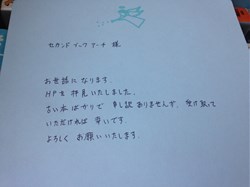 セカンド ブック アーチ 様
お世話になります。
HPを拝見いたしました。
古い本ばかりで申し訳ありませんが、受け取って
いただければ幸いです。
よろしくお願いいたします